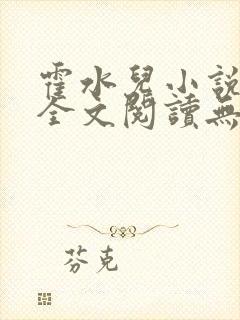 霍水兒小説
全文閱讀無
芬克